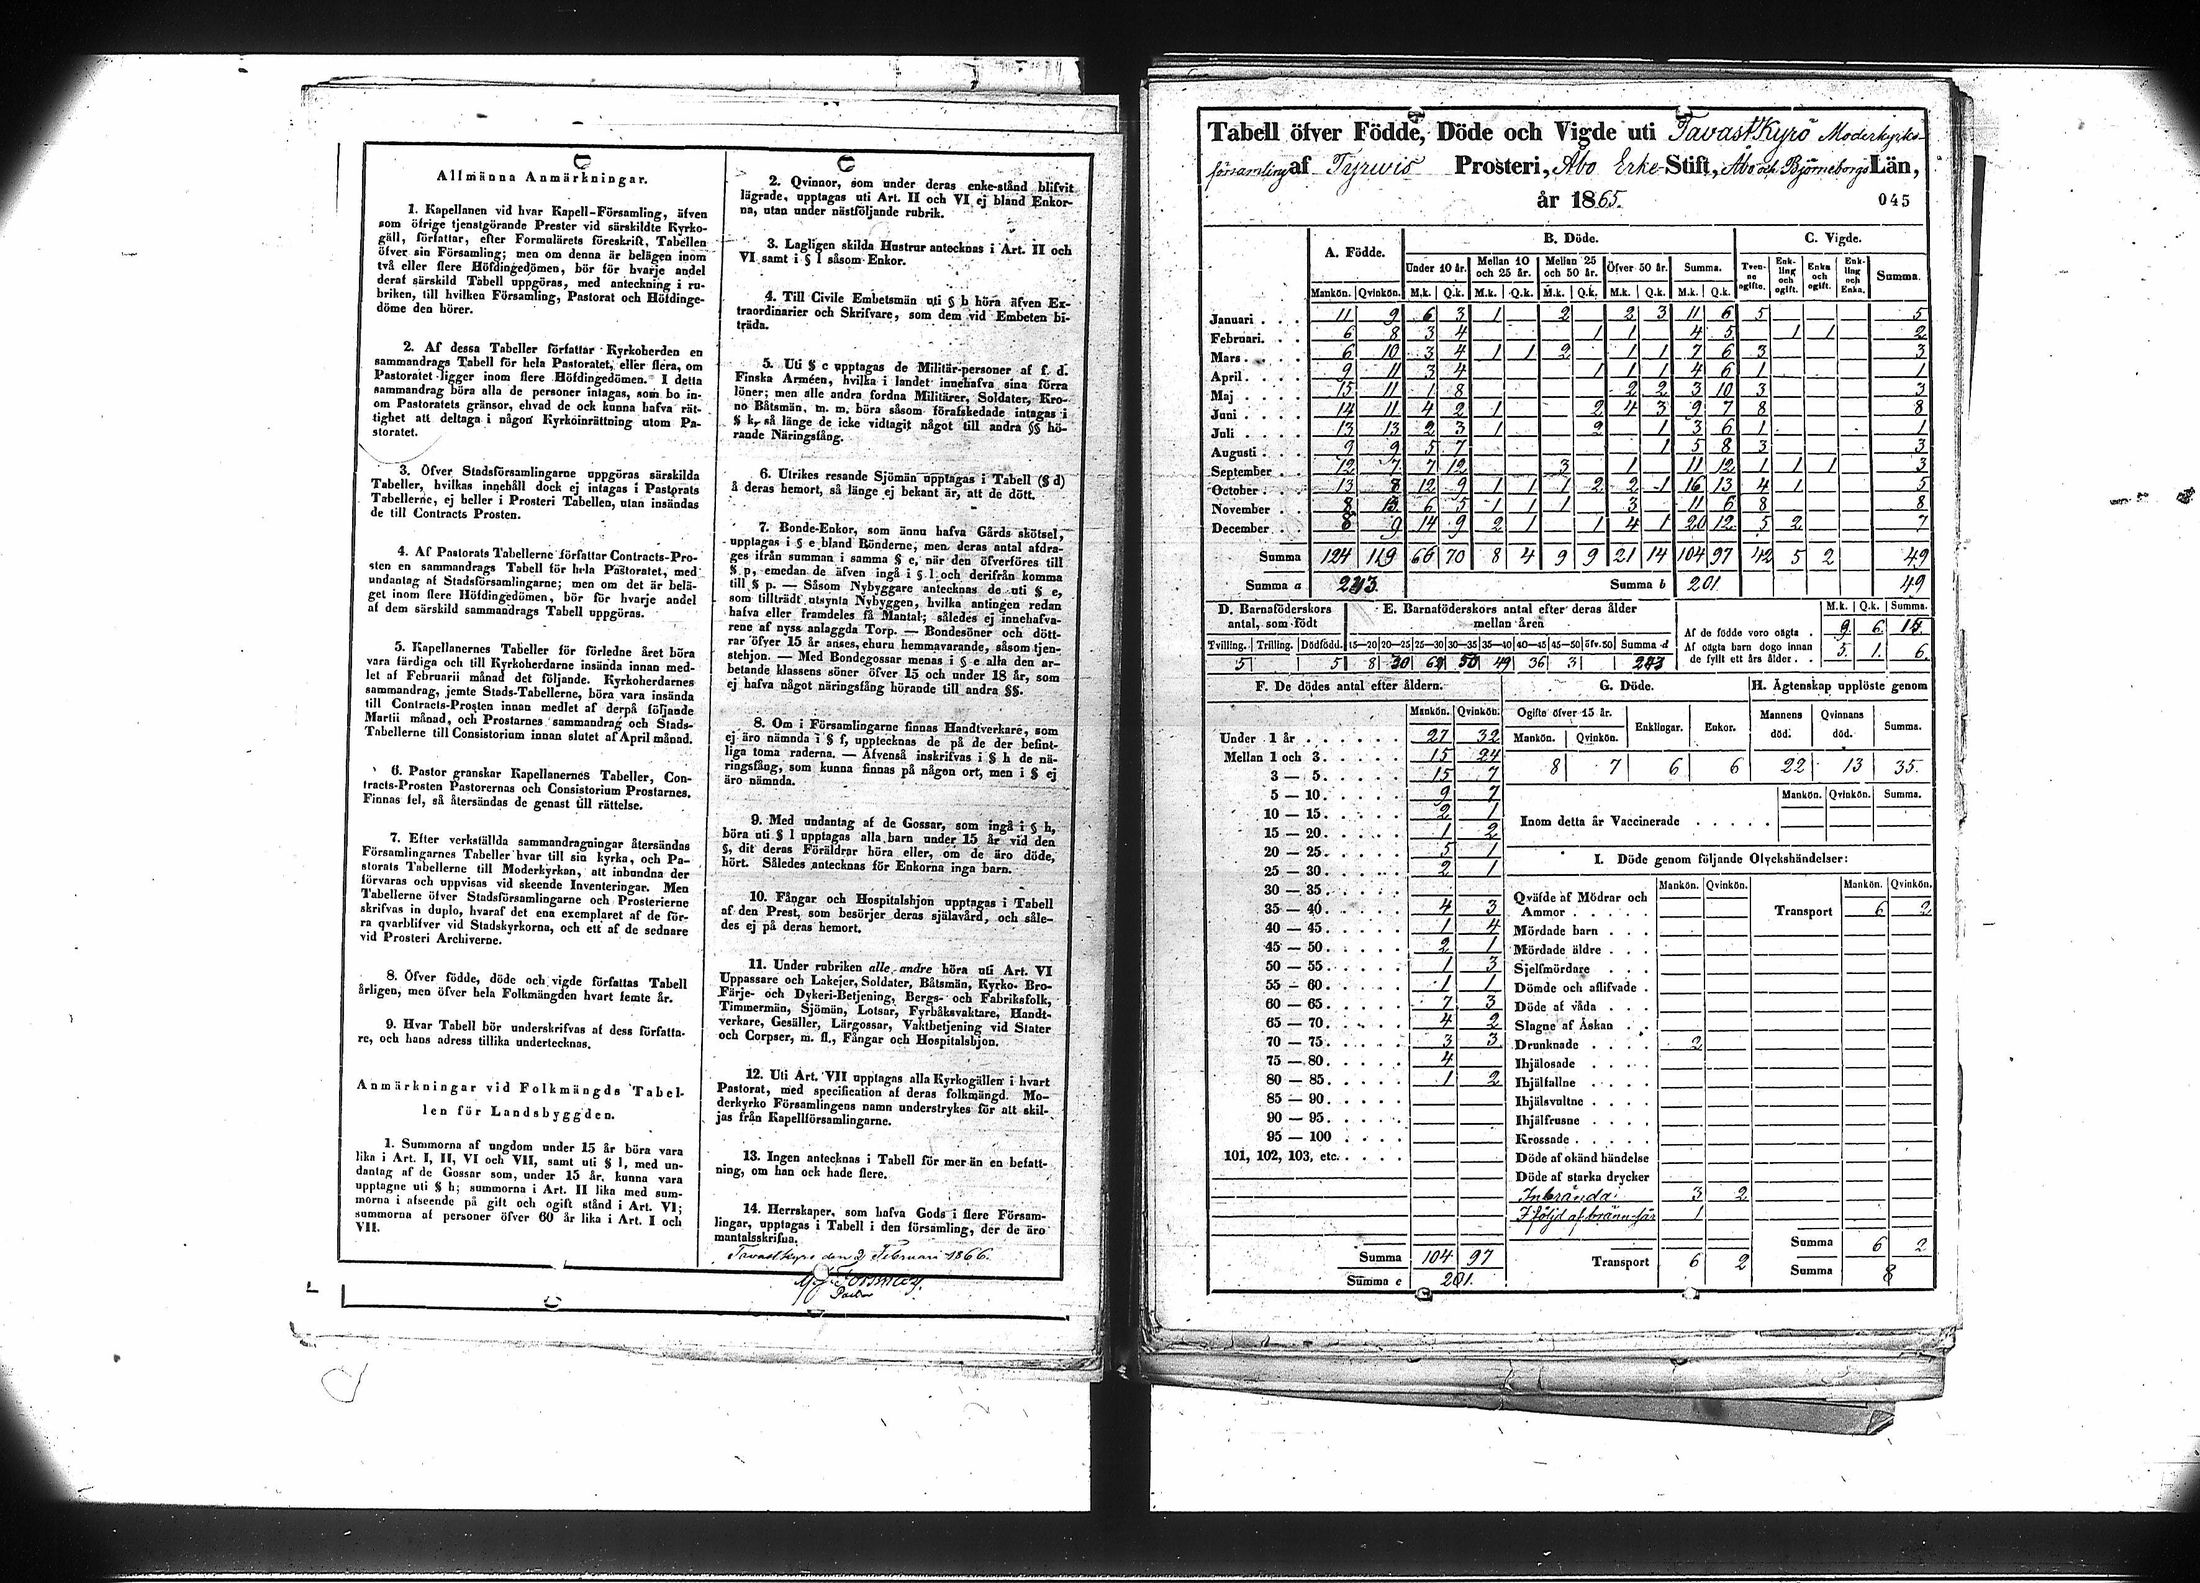 Allmänna Anmärkningar.
1. Kapellanen vid hvar Kapell-Församling, äfven
som öfrige tjenstgörande Prester vid särskildte Kyrko-
gäll, författar, efter Formulärets föreskrift, Tabellen
öfver sin Församling; men om denna är belägen inom
två eller flere Höfdingedömen, bör för hvarje andel
deraf särskild Tabell uppgöras, med anteckning i ru-
briken, till hvilken Församling, Pastorat och Höfdinge-
döme den hörer.
2. Af dessa Tabeller författar Kyrkoherden en
sammandrags Tabell för hela Pastoratet, eller flera, om
Pastoratet ligger inom flere Höfdingedömen. I detta
sammandrag böra alla de personer intagas, som bo in-
om Pastoratets gränsor, ehvad de ock kunna hafva rät-
tighet att deltaga i någon Kyrkoinrättning utom Pa-
storatet.
3. Öfver Stadsförsamlingarne uppgöras särskilda
Tabeller, hvilkas innehåll dock ej intages i Pastorats
Tabellerne, ej heller i Prosteri Tabellen, utan insändas
de till Contracts Prosten.
4. Af Pastorats Tabellerne författar Contracts-Pro-
sten en sammandrags Tabell för hela Pastoratet, med
undantag af Stadsförsamlingarne; men om det är belä-
get inom flere Höfdingedömen, bör för hvarje andel
af dem särskild sammandrags Tabell uppgöras.
5. Kapellanernes Tabeller för förledne året böra
vara färdiga och till Kyrkoherdarne insända innan med-
let af Februarii månad det följande. Kyrkoherdarnes
sammandrag, jemte Stads-Tabellerne, böra vara insända
till Contracts-Prosten innan medlet af derpå följande
Martii månad, och Prostarnes sammandrag och Stads-
Tabellerne till Consistorium innan slutet af April månad.
6. Pastor granskar Kapellanernes Tabeller, Con-
tracts-Prosten Pastorernas och Consistorium Prostarnes.
Finnas fel, så återsändas de genast till rättelse.
7. Efter verkställda sammandragningar återsändas
Församlingarnes Tabeller hvar till sin kyrka, och Pa-
storats Tabellerne till Moderkyrkan, att inbundna der
förvaras och uppvisas vid skeende Inventeringar. Men
Tabellerne öfver Stadsförsamlingarne och Prosterierne
skrifvas in duplo, hvaraf det ena exemplaret af de för-
ra qvarblifver vid Stadskyrkorna, och ett af de sednare
vid Prosteri Archiverne.
8. Öfver födde, döde och vigde författas Tabell
årligen, men öfver hela Folkmängden hvart femte år.
9. Hvar Tabell bör underskrifvas af dess författa-
re, och hans adress tillika undertecknas.
Anmärkningar vid Folkmängds Tabel-
len för Landsbyggden.
1. Summorna af ungdom under 15 år böra vara
lika i Art. I, II, VI och VII, samt uti § l, med un-
dantag af de Gossar som, under 15 år, kunna vara
upptagne uti § h; summorna i Art. II lika med sum-
morna i afseende på gift och ogift stånd i Art. VI;
summorna af personer öfver 60 år lika i Art. I och
VII.
2. Qvinnor, som under deras enke-stånd blifvit
lägrade, upptagas uti Art. II och VI ej bland Enkor-
na, utan under nästföljande rubrik.
3. Lagligen skilda Hustrur antecknas i Art. II och
VI samt i § l såsom Enkor.
4. Till Civile Embetsmän uti § b höra äfven Ex-
traordinarier och Skrifvare, som dem vid Embeten bi-
träda.
5. Uti § c upptagas de Militär-personer af f. d.
Finska Arméen, hvilka i landet innehafva sina förra
löner; men alle andra fordna Militärer, Soldater, Kro-
no Båtsmän, m. m. böra såsom förafskedade intagas i
§ k, så länge de icke vidtagit något till andra §§ hö-
rande Näringsfång.
6. Utrikes resande Sjömän upptagas i Tabell (§ d)
å deras hemort, så länge ej bekant är, att de dött.
7. Bonde-Enkor, som ännu hafva Gårds skötsel,
upptagas i § e bland Bönderne, men deras antal afdra-
ges ifrån summan i samma § e, när den öfverföres till
§ p, emedan de äfven ingå i § l och derifrån komma
till § p. — Såsom Nybyggare antecknas de uti § e,
som tillträdt utsynta Nybyggen, hvilka antingen redan
hafva eller framdeles få Mantal; således ej innehafva-
rene af nyss anlaggda Torp. — Bondesöner och dött-
rar öfver 15 år anses, ehuru hemmavarande, såsom tjen-
stehjon. — Med Bondegossar menas i § e alla den ar-
betande klassens söner öfver 15 och under 18 år, som
ej hafva något näringsfång hörande till andra §§.
8. Om i Församlingarne finnas Handtverkare, som
ej äro nämnda i § f, upptecknas de på de der befint-
liga toma raderna. — Äfvenså inskrifvas i § h de nä-
ringsfång, som kunna finnas på någon ort, men i § ej
äro nämnda.
9. Med undantag af de Gossar, som ingå i § h,
böra uti § l upptagas alla barn under 15 år vid den
§, dit deras Föräldrar höra eller, om de äro döde,
hört. Således antecknas för Enkorna inga barn.
10. Fångar och Hospitalshjon upptagas i Tabell
af den Prest, som besörjer deras själavård, och såle-
des ej på deras hemort.
11. Under rubriken alle andre höra uti Art. VI
Uppassare och Lakejer, Soldater, Båtsmän, Kyrko- Bro-
Färje- och Dykeri-Betjening, Bergs- och Fabriksfolk,
Timmermän, Sjömän, Lotsar, Fyrbåksvaktare, Handt-
verkare, Gesäller, Lärgossar, Vaktbetjening vid Stater
och Corpser, m. fl., Fångar och Hospitalshjon.
12. Uti Art. VII upptagas alla Kyrkogällen i hvart
Pastorat, med specification af deras folkmängd. Mo-
derkyrko Församlingens namn understrykes för att skil-
jas från Kapellförsamlingarne.
13. Ingen antecknas i Tabell för mer än en befatt-
ning, om han ock hade flere.
14. Herrskaper, som hafva Gods i flere Försam-
lingar, upptagas i Tabell i den församling, der de äro
mantalsskrifna.
Tavastkyro den 2 Februari 1866.
Pastor
Tabell öfver Födde, Döde och Vigde uti TavastKyrö Moderkyrko-
församling af Tyrwis Prosteri, Åbo Erke-Stift, Åbo och Björneborgs Län,
år 1865. 045
A. Födde. B. Döde. C. Vigde.
Under 10 år. Mellan 10 och 25 år. Mellan 25 och 50 år. Öfver 50 år. Summa. Tvenne ogifte. Enkling och ogift. Enka och ogift. Enkling och Enka. Summa.
Mankön. Qvinkön. M.k. Q.k. M.k. Q.k. M.k. Q.k. M.k. Q.k. M.k. Q.k.
Januari 11 9 6 3 1 2 2 3 11 6 5 5
Februari 6 8 3 4 1 1 4 5 1 1 2
Mars 6 10 3 4 1 1 2 1 1 7 6 3 3
April 9 11 3 4 1 1 1 4 6 1 1
Maj 15 11 1 8 2 2 3 10 3 3
Juni 14 11 4 2 1 2 4 3 9 7 8 8
Juli 13 13 2 3 1 2 1 3 6 1 1
Augusti 9 9 5 7 1 5 8 3 3
September 12 7 7 12 3 1 11 12 1 1 1 3
October 13 8 12 9 1 1 1 2 2 1 16 13 4 1 5
November 8 13 6 5 1 1 1 3 11 6 8 8
December 8 9 14 9 2 1 1 4 1 20 12 5 2 7
Summa 124 119 66 70 8 4 9 9 21 14 104 97 42 5 2 49
Summa a 243. Summa b 201 49
D. Barnaföderskors antal, som födt
E. Barnaföderskors antal efter deras ålder mellan åren
M.k. Q.k. Summa.
Af de födde voro oägta 9 6 15.
Af oägta barn dogo innan de fyllt ett års ålder 5. 1. 6.
Tvilling. Trilling. Dödfödd. 15—20 20—25 25—30 30—35 35—40 40—45 45—50 öfv. 50 Summa d
5 5 8 30 62 50 49 36 3 243
F. De dödes antal efter åldern.
Mankön. Qvinkön.
Under 1 år 27 32
Mellan 1 och 3 15 24
3 — 5 15 7
5 — 10 9 7
10 — 15 2 1
15 — 20 1 2
20 — 25 5 1
25 — 30 2 1
30 — 35
35 — 40 4 3
40 — 45 1 4
45 — 50 2 1
50 — 55 1 3
55 — 60 1 1
60 — 65 7 3
65 — 70 4 2
70 — 75 3 3
75 — 80 4
80 — 85 1 2
85 — 90
90 — 95
95 — 100
101, 102, 103, etc.
Summa 104 97
Summa c 201.
G. Döde.
Ogifte öfver 15 år. Enklingar. Enkor.
Mankön. Qvinkön.
8 7 6 6
H. Ägtenskap upplöste genom
Mannens död. Qvinnans död. Summa.
22 13 35.
Mankön. Qvinkön. Summa.
Inom detta år Vaccinerade
I. Döde genom följande Olyckshändelser:
Mankön. Qvinkön. Mankön. Qvinkön.
Qväfde af Mödrar och
Ammor Transport 6 2
Mördade barn
Mördade äldre
Sjelfmördare
Dömde och aflifvade
Döde af våda
Slagne af Åskan
Drunknade 2
Ihjälosade
Ihjälfallne
Ihjälsvultne
Ihjälfrusne
Krossade
Döde af okänd händelse
Döde af starka drycker
Inbrända 3 2
I följd af brännsår 1
Summa 6 2
Transport 6 2 Summa 8